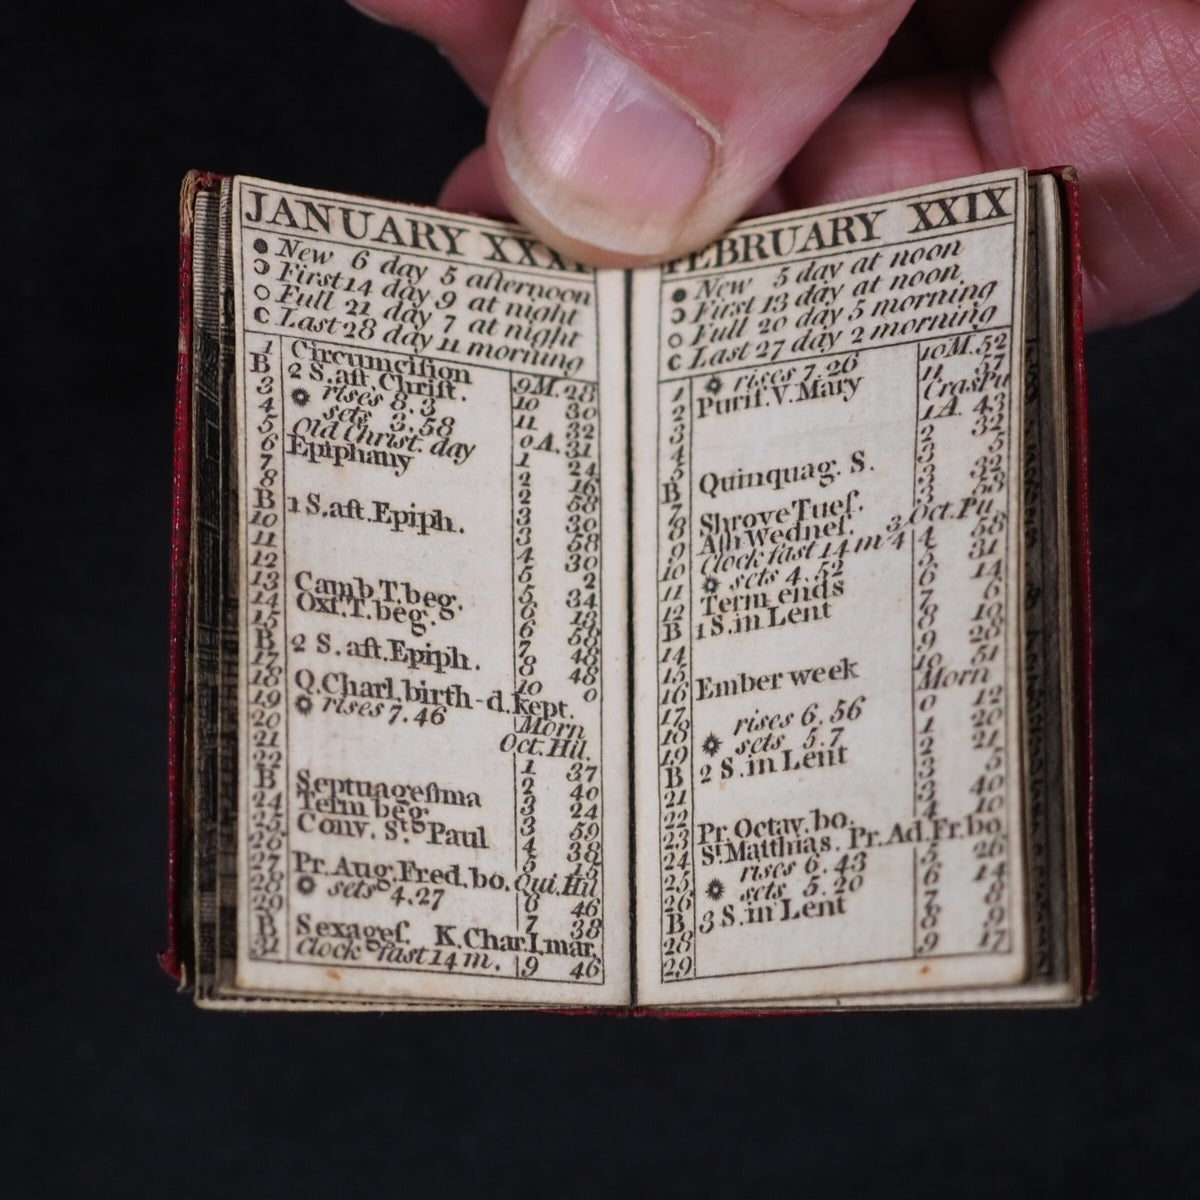 JANUARY XXXI
● New 6 day 5 afternoon
☽ First 14 day 9 at night
○ Full 21 day 7 at night
☾ Last 28 day 11 morning
1 Circumciſion 9M.28
B 2 S.aft.Chriſt. 10 30
3 rises 8.3 11 32
4 sets 3.58 0A.31
5 Old Christ. day 1 24
6 Epiphany 2 16
7 2 58
8 3 30
B 1 S.aft.Epiph. 3 58
10 4 30
11 5 2
12 5 34
13 Camb.T.beg. 6 13
14 Oxf.T.beg. 6 58
15 7 48
B 2 S.aft.Epiph. 8 48
17 10 0
18 Q.Charl.birth-d.kept.
19 rises 7.46 Morn
20 Oct.Hil.
21 1 37
22 2 40
B Septuageſima 3 24
24 Term beg. 3 59
25 Conv. St. Paul 4 38
26 5 15
27 Pr.Aug.Fred.bo. Qui.Hil
28 sets 4.27 6 46
29 7 38
B Sexageſ. K.Char.I.mar.
31 Clock fast 14 m. 9 46
FEBRUARY XXIX
● New 5 day at noon
☽ First 13 day at noon
○ Full 20 day 5 morning
☾ Last 27 day 2 morning
10M.52
1 rises 7.26 11 37
2 Purif.V.Mary CrasPu
3 1A. 43
4 2 32
5 3 5
B Quinquag. S. 3 32
7 3 53
8 Shrove Tueſ. Oct.Pu.
9 Aſh Wedneſ. 4 58
10 Clock fast 14 m 5 31
11 sets 4.52 6 14
12 Term ends 7 6
B 1 S.in Lent 8 10
14 9 28
15 10 51
16 Ember week Morn
17 0 12
18 rises 6.56 1 20
19 sets 5.7 2 21
B 2 S.in Lent 3 5
21 3 40
22 4 10
23 Pr.Octav.bo.
24 St.Matthias. Pr.Ad.Fr.bo.
25 rises 6.43 5 26
26 sets 5.20 6 14
B 3 S.in Lent 7 8
28 8 9
29 9 17